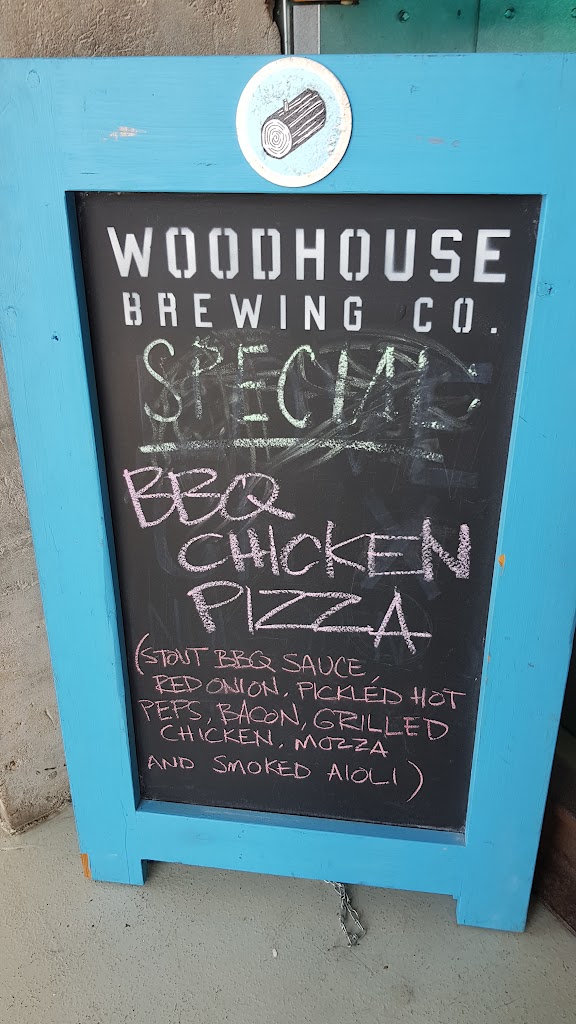 WOODHOUSE
BREWING CO.
SPECIAL
BBQ
CHICKEN
PIZZA
(STOUT BBQ SAUCE,
RED ONION, PICKLED HOT
PEPS, BACON, GRILLED
CHICKEN, MOZZA
AND SMOKED AIOLI)